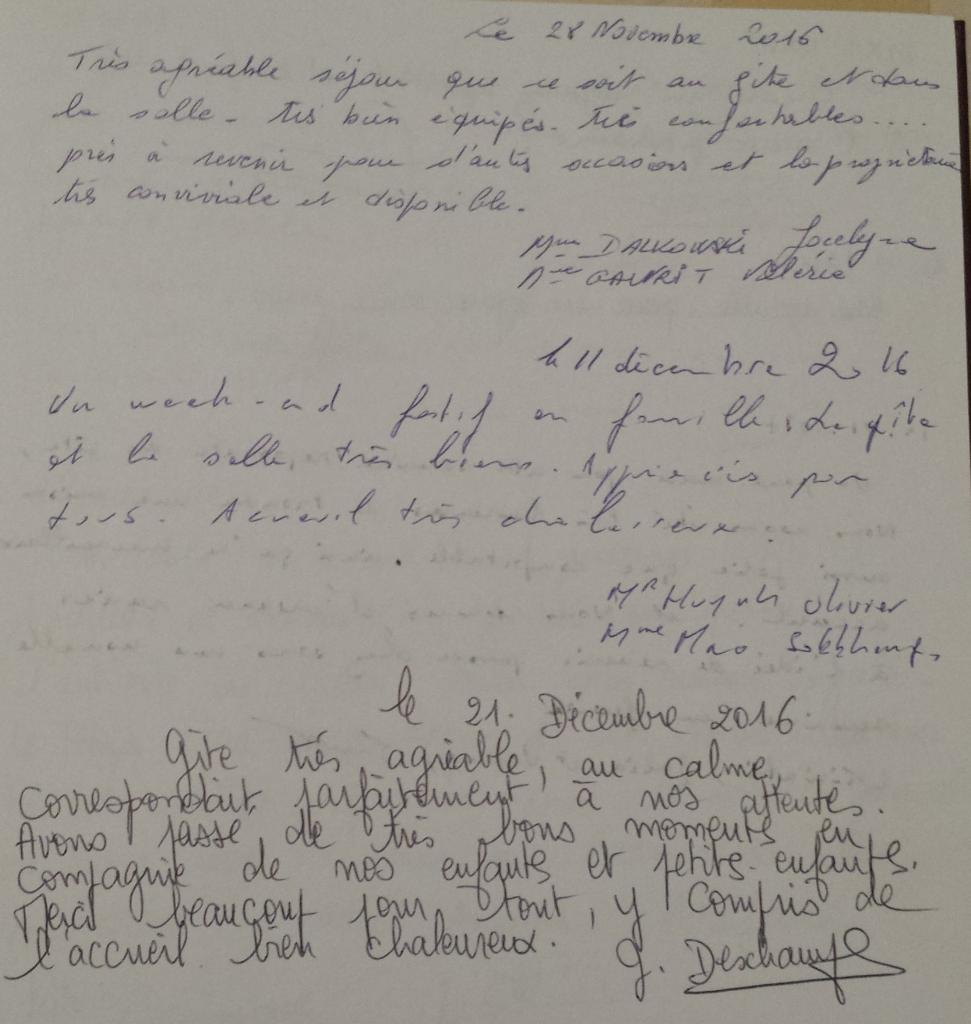 Le 28 Novembre 2016
Très agréable séjour que ce soit au gîte et dans
la salle - très bien équipés. très confortables....
près à revenir pour d'autres occasions et la propriétaire
très conviviale et disponible.
Mme DALKOWSKI Jocelyne
Mme Valérie
le 11 décembre 2016
Un week-end festif en famille. Le gîte
et la salle très biens. Appréciés par
tous. Accueil très chaleureux.
Mr Huynh Olivier
Mme Mao
le 21. Décembre 2016
Gîte très agréable, au calme,
Correspondait parfaitement à nos attentes.
Avons passé de très bons moments en
compagnie de nos enfants et petits-enfants.
Merci beaucoup pour tout, y compris de
l'accueil bien chaleureux.
G. Deschamps